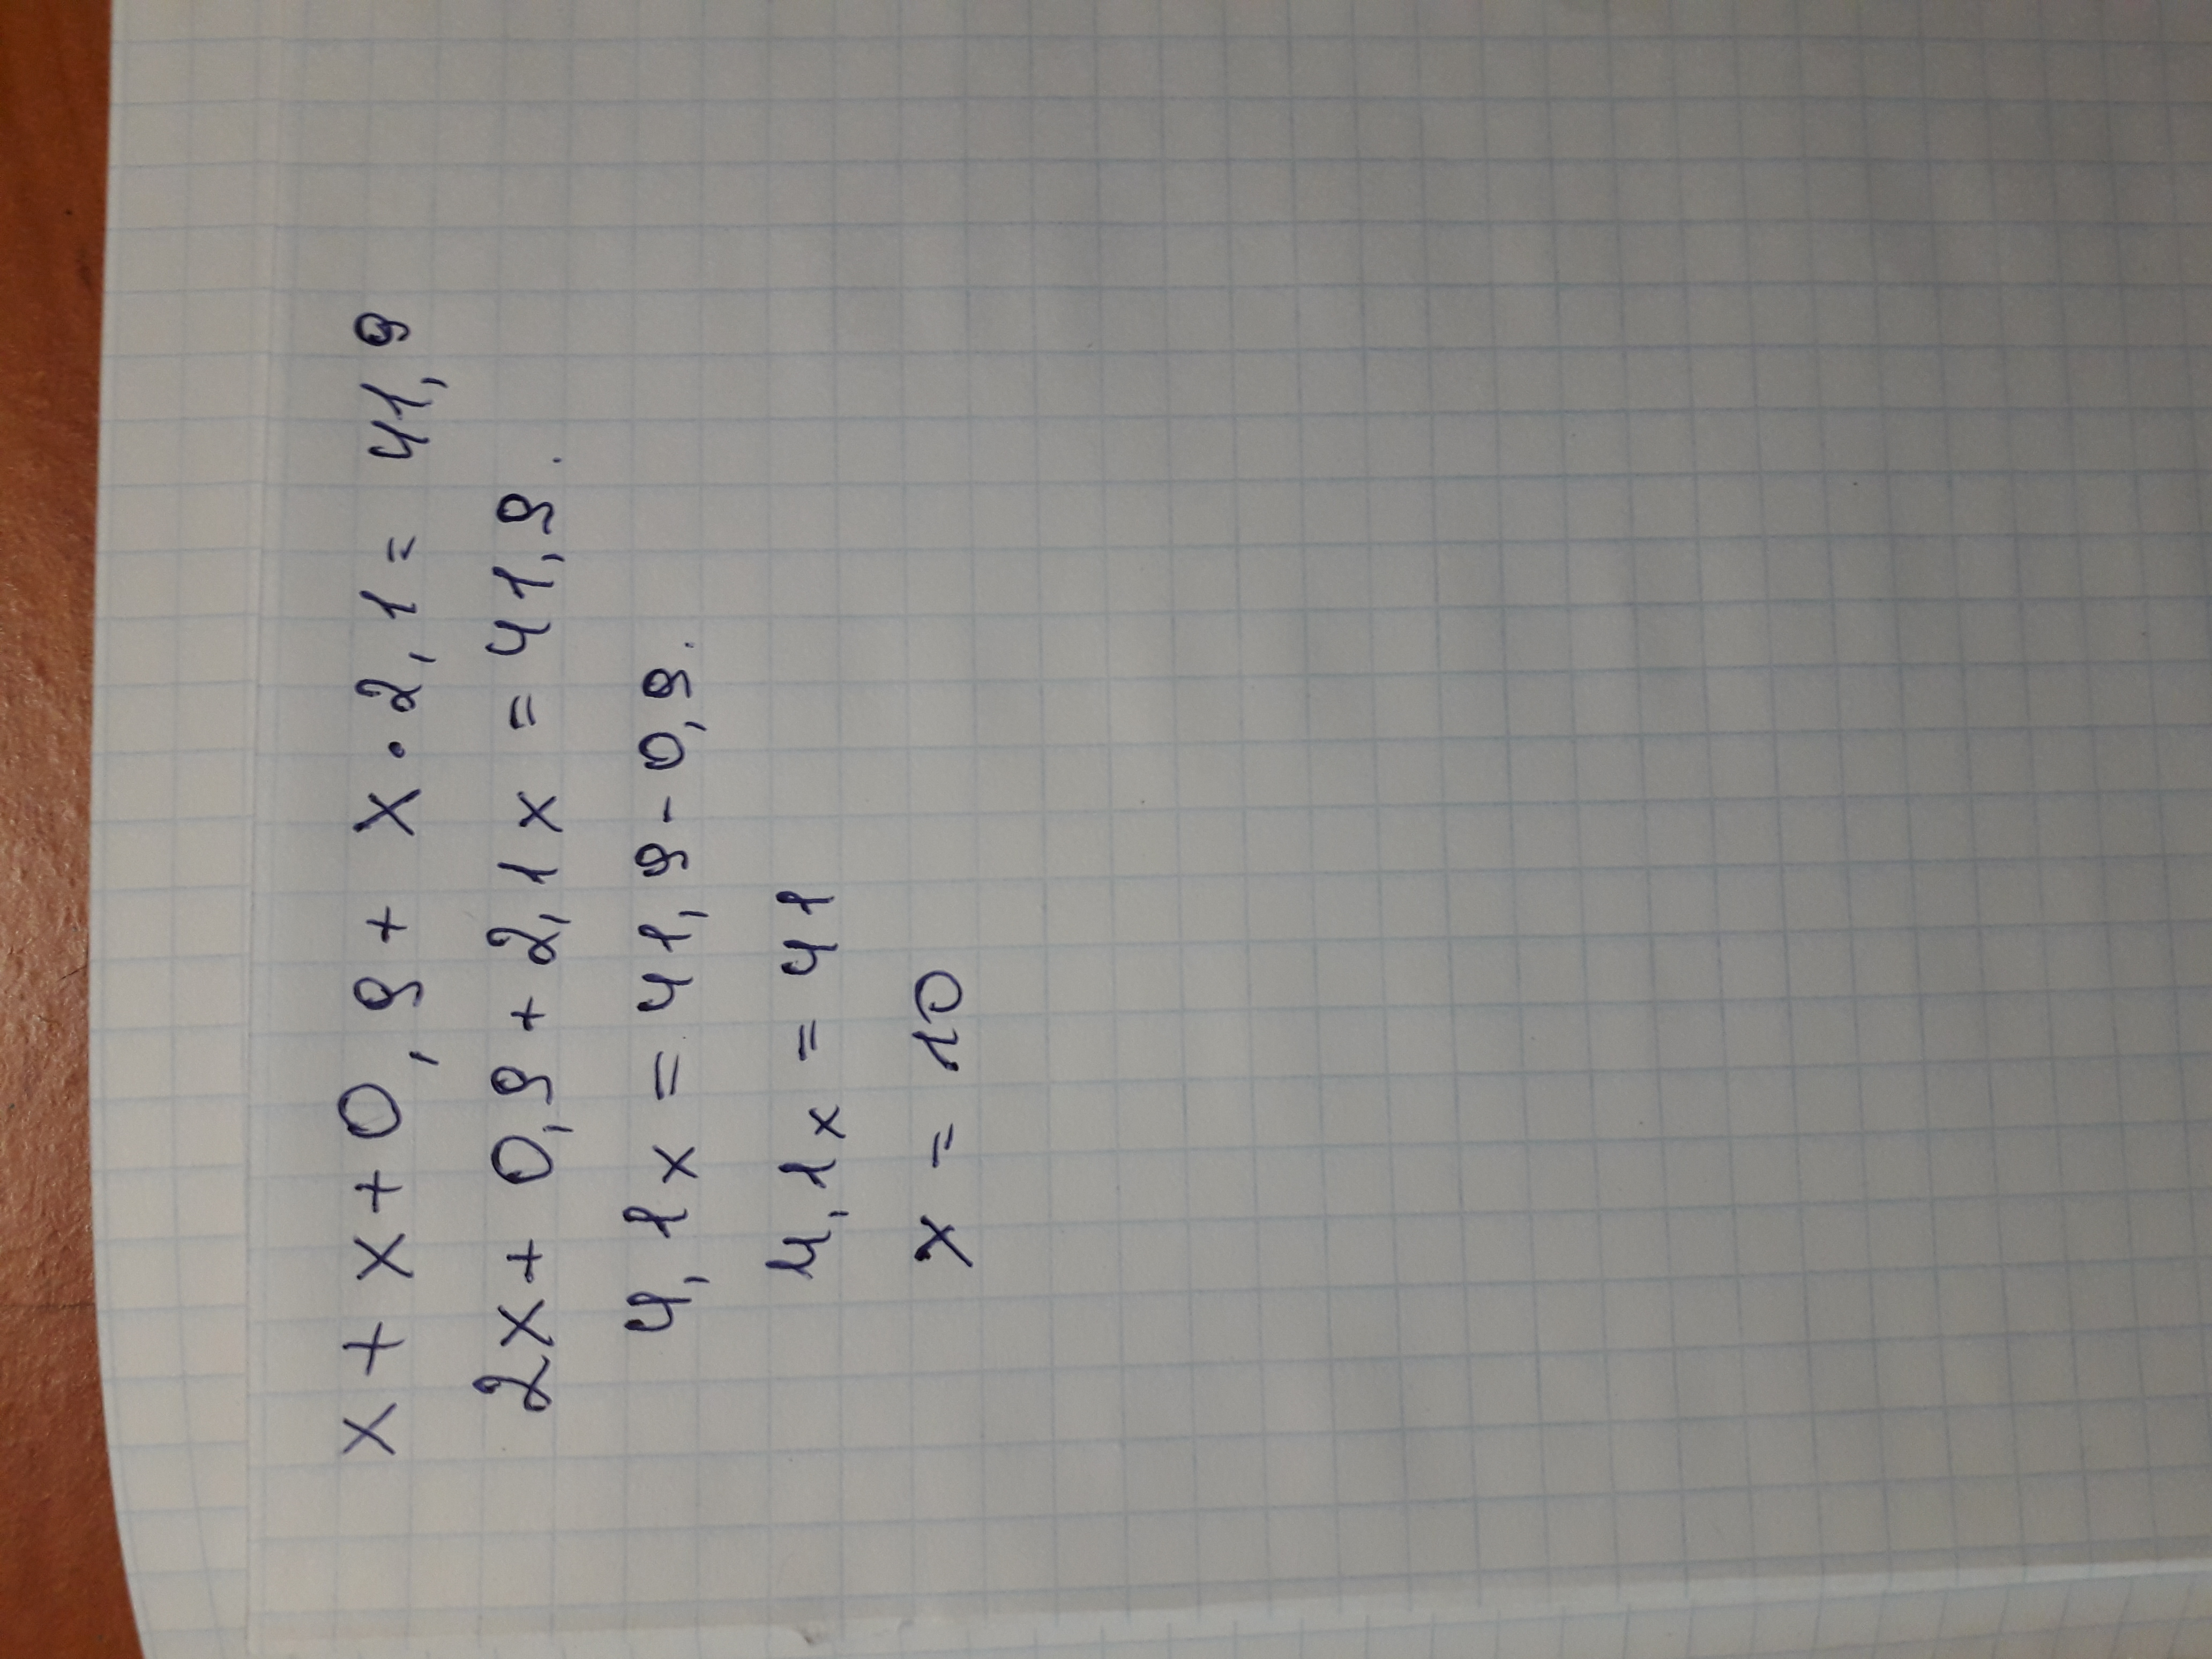 x + x + 0,9 + x · 2,1 = 41,9
2x + 0,9 + 2,1x = 41,9.
4,1x = 41,9 - 0,9.
4,1x = 41
x = 10